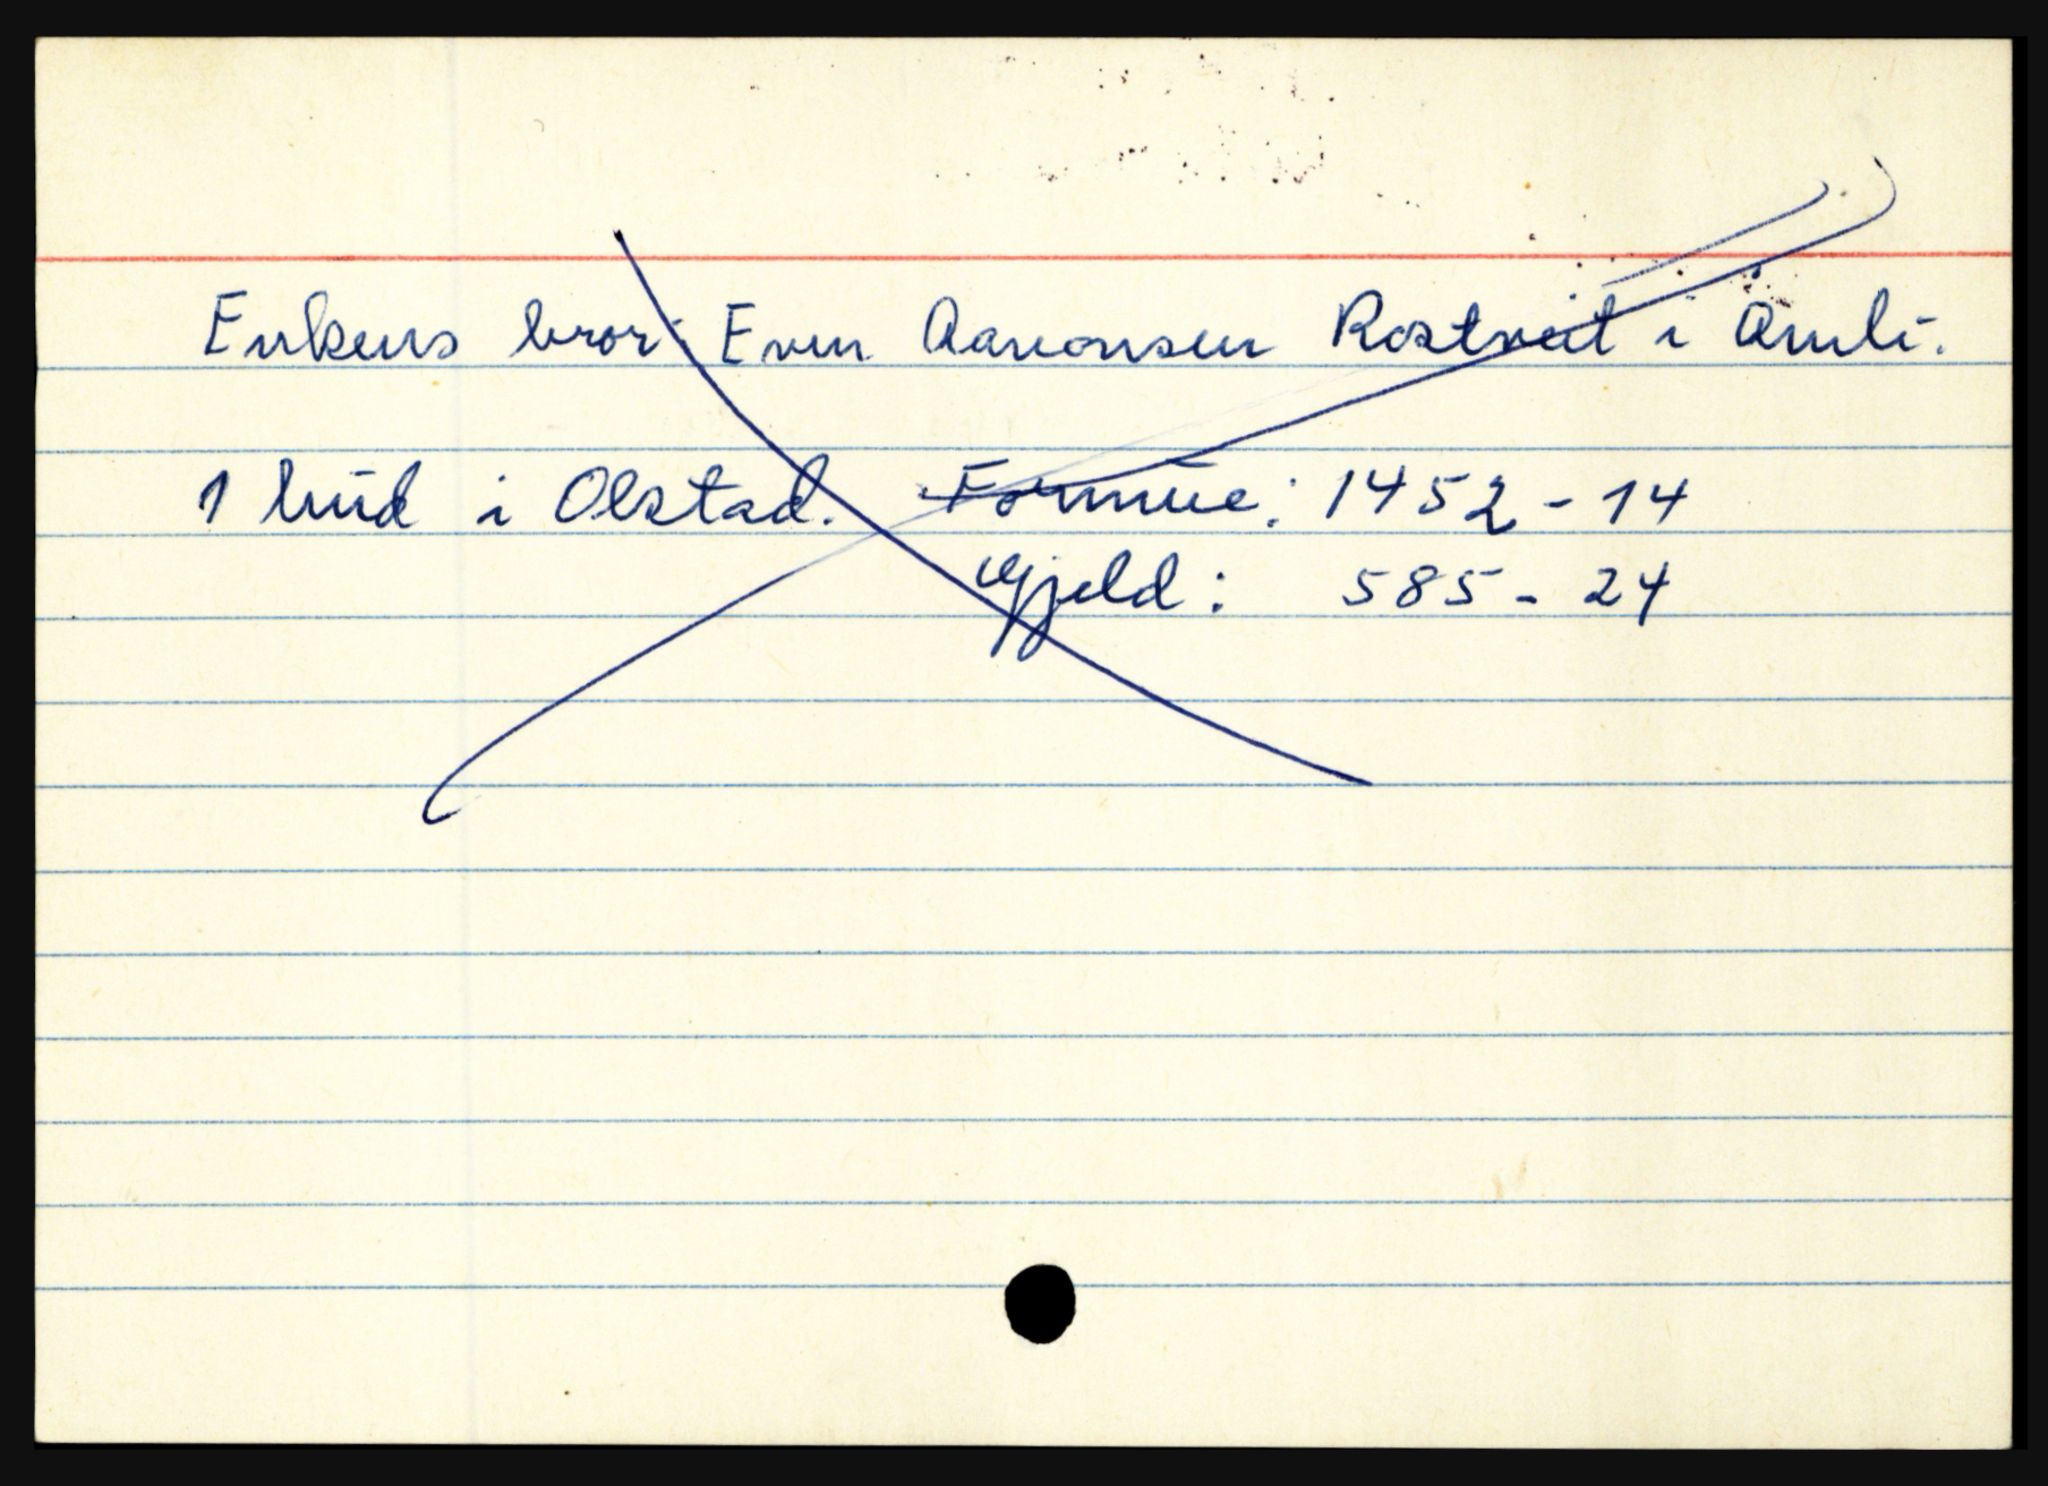 Enkens bror: Even Aanonsen Rostveit i Åmli.
1 hud i Olstad. Formue: 1452-14
Gjeld: 585-24